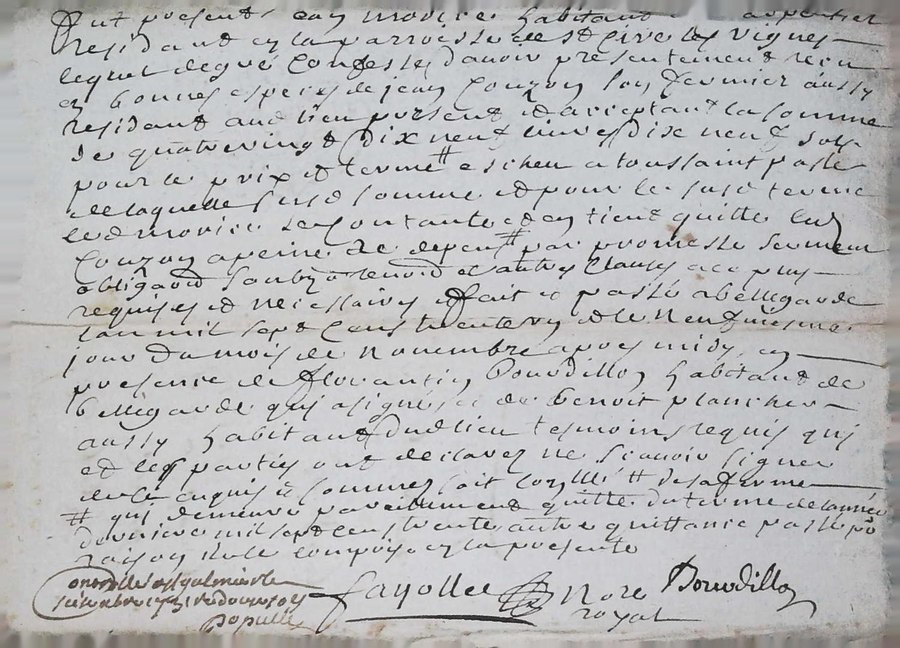 fut present Jean morice habitant
residant en la parroisse de st Cire les vignes
lequel de gré Confesse davoir presentement receu
en bonnes especes de jean Couzon son fermier aussy
residant audt lieu present et acceptant la somme
de quatrevingt dix neuf livres dix neuf sols
pour le prix et terme escheu a toussaint passé
de laquelle susd somme et pour le susd terme
led morice se Contante et en tient quitte led
Couzon a peine de depens par promesse serment
obligaon soubz renon et autres Clauses a ce plus
requises et necessaires fait et passé a bellegarde
lan mil sept Cens trente un et le neufviesme
jour du mois de novembre apres midy en
presence de florantin Bourdillon habitant de
bellegarde qui a signé et de benoit plancher
aussy habitant dud lieu tesmoins requis qui
et les parties ont declaré ne scavoir signer
de ce enquis et sommés soit Con^llé # de sa ferme
# qui demeure pareillement quitte du terme de lannée
derniere mil sept cens trente autre quittance passé po
raison de ce Comprise en la presente
Conorollé a st galmier le
novembre 1731 receu douze sols
Popülle
fayolle Nore royal
Bourdillon